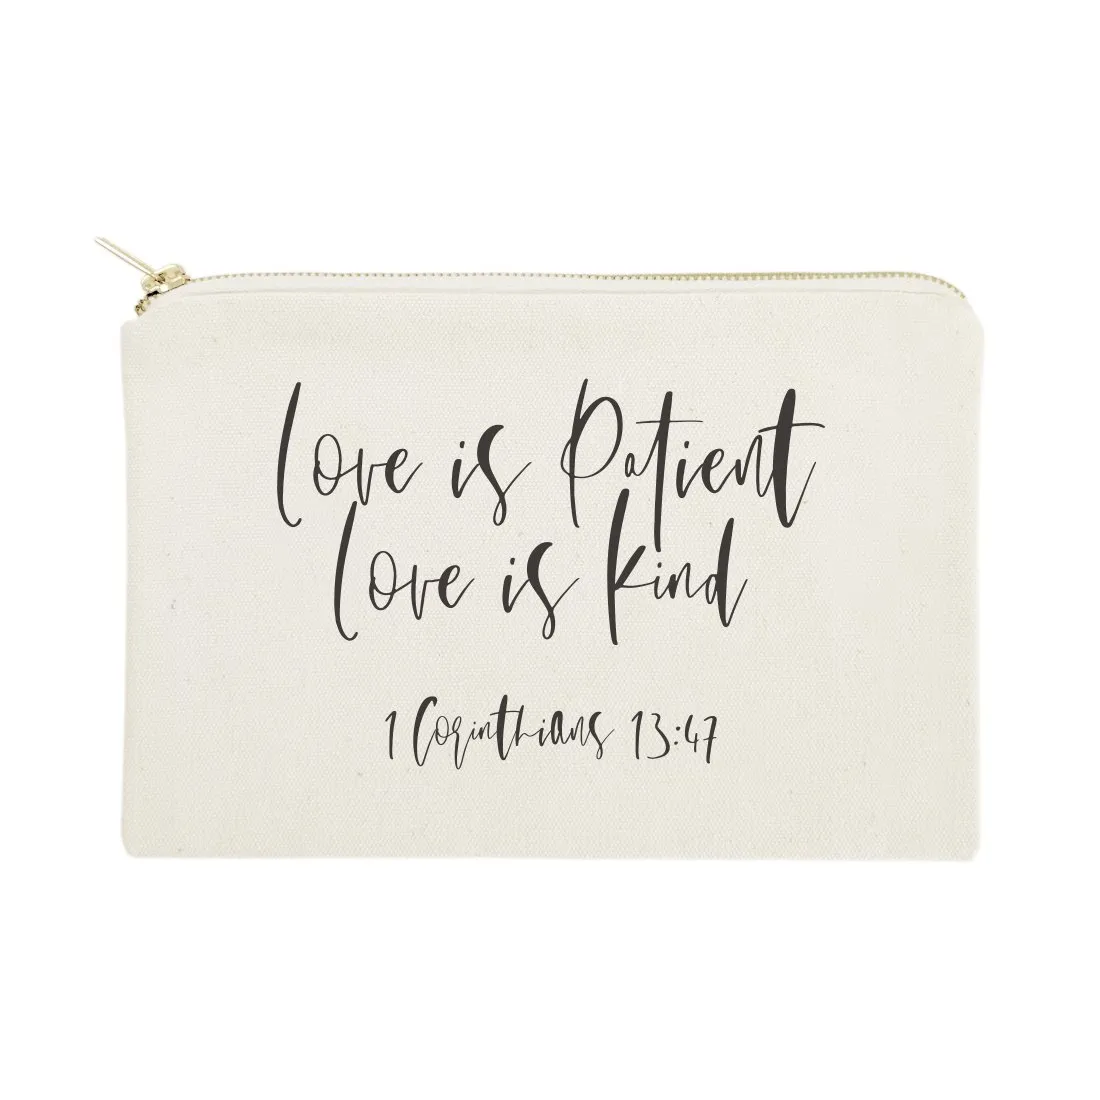 Love is Patient
Love is kind
1 Corinthians 13:47